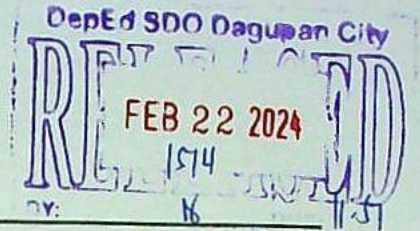 DepEd SDO Dagupan City
RELEASED
FEB 22 2024
1514
BY: